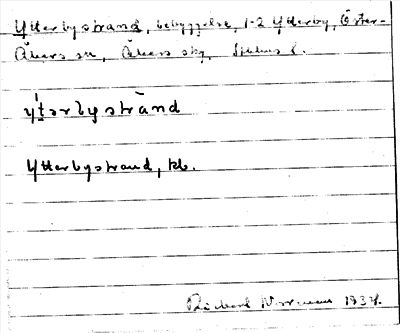 Ytterbystrand, bebyggelse, 1-2 Ytterby, Öster-
Åkers sn, Åkers skg, Sthlms l.
y'tərbystrànd
Ytterbystrand, kb.
Rickard 1934.